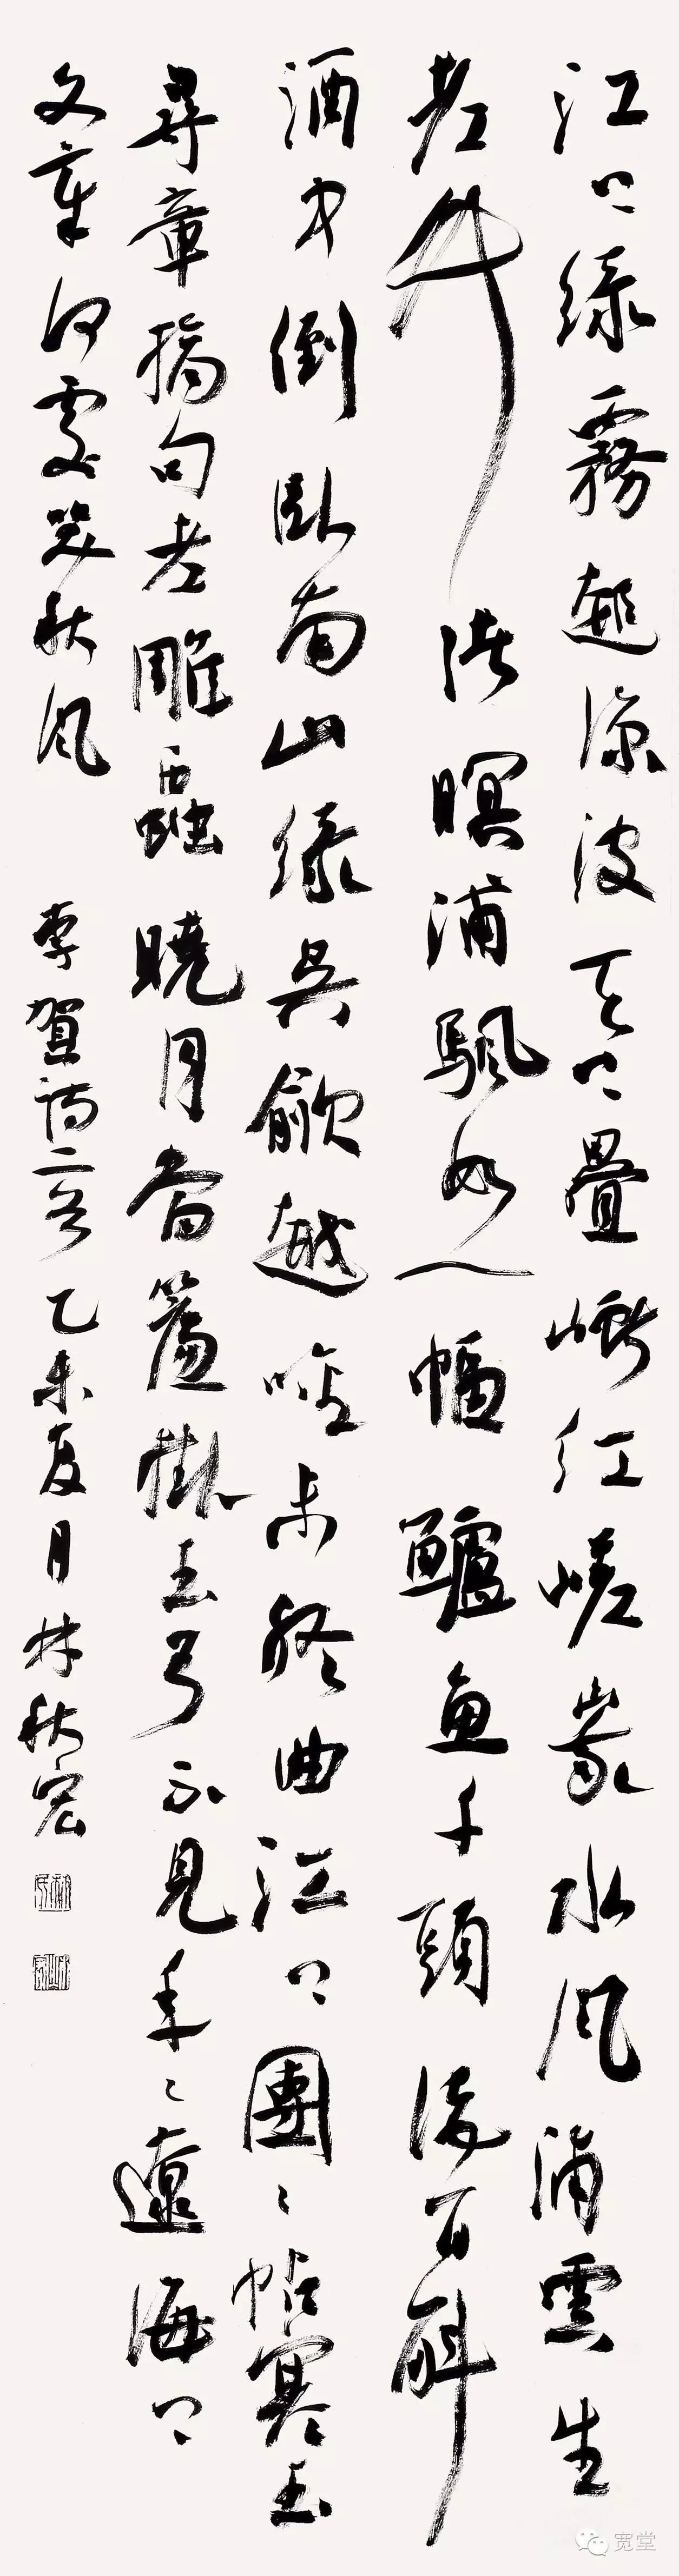 江上綠霧起涼波天上疊巘紅嵯峩水風浦雲生
老竹渚暝浦颿如一幅鱸魚千頭酒百斛
酒中倒臥南山綠吳歈越吟未終曲江上團〻帖寒玉
尋章摘句老雕蟲曉月當簾掛玉弓不見年〻遼海上
文章何處哭秋風 李賀詩二首 乙未夏月 林秋宏
宽堂